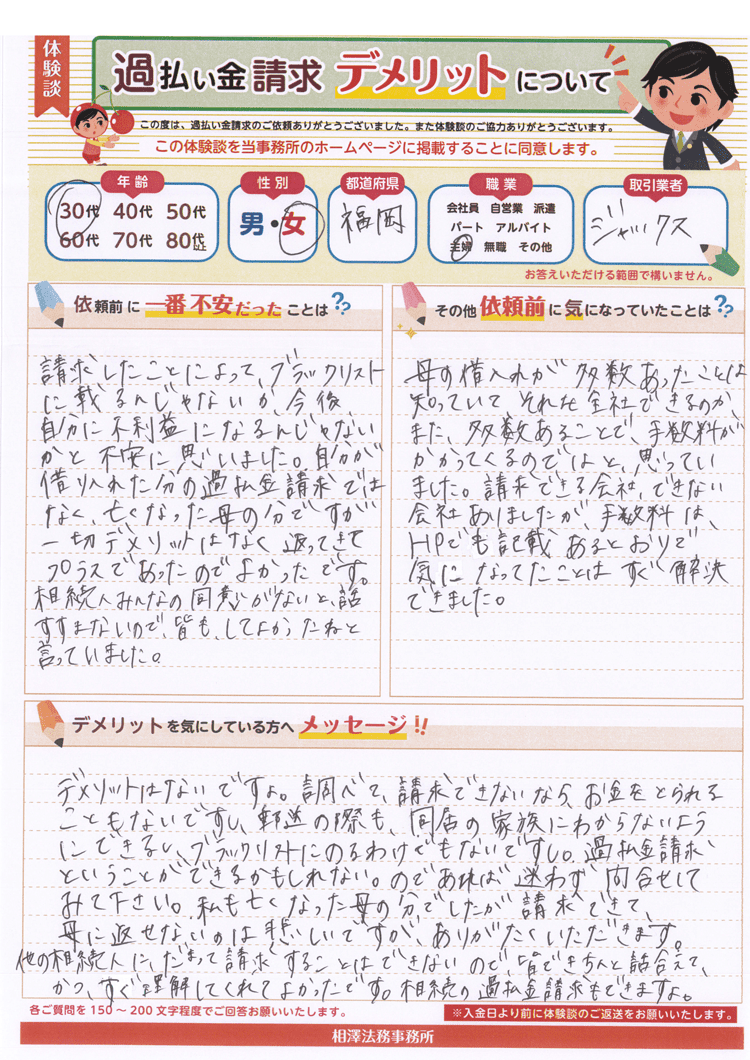 体験談
過払い金請求 デメリットについて
この度は、過払い金請求のご依頼ありがとうございました。また体験談のご協力ありがとうございます。
この体験談を当事務所のホームページに掲載することに同意します。
年齢
30代 40代 50代
60代 70代 80代以上
性別
男・女
都道府県
福岡
職業
会社員 自営業 派遣
パート アルバイト
主婦 無職 その他
取引業者
ジャックス
お答えいただける範囲で構いません。
依頼前に一番不安だったことは??
請求したことによって、ブラックリスト
に載るんじゃないか、今後
自分に不利益になるんじゃない
かと不安に思いました。自分が
借り入れた分の過払金請求では
なく、亡くなった母の分ですが
一切デメリットはなく返ってきて
プラスであったのでよかったです。
相続人みんなの同意がないと、話
すすまないので、皆も、してよかったねと
言っていました。
その他依頼前に気になっていたことは??
母の借入れが多数あったことは
知っていて それを全社できるのか、
また、多数あることで、手数料が
かかってくるのではと、思ってい
ました。請求できる会社、できない
会社ありましたが、手数料は、
HPでも記載あるとおりで
気になってたことは すぐ解決
できました。
デメリットを気にしている方へ メッセージ!!
デメリットはないですよ。調べて、請求できないなら、お金をとられる
こともないですし、郵送の際も、同居の家族にわからないよう
にできるし、ブラックリストにのるわけでもないですし。過払金請求
ということができるかもしれない。のであれば 迷わず 問合せして
みて下さい。私も亡くなった母の分でしたが 請求できて、
母に返せないのは悲しいですが、ありがたくいただきます。
他の相続人に、だまって請求することはできないので、皆できちんと話合えて、
かつ、すぐ理解してくれてよかったです。相続の過払金請求もできますよ。
各ご質問を150～200文字程度でご回答お願いいたします。
※入金日より前に体験談のご返送をお願いいたします。
相澤法務事務所